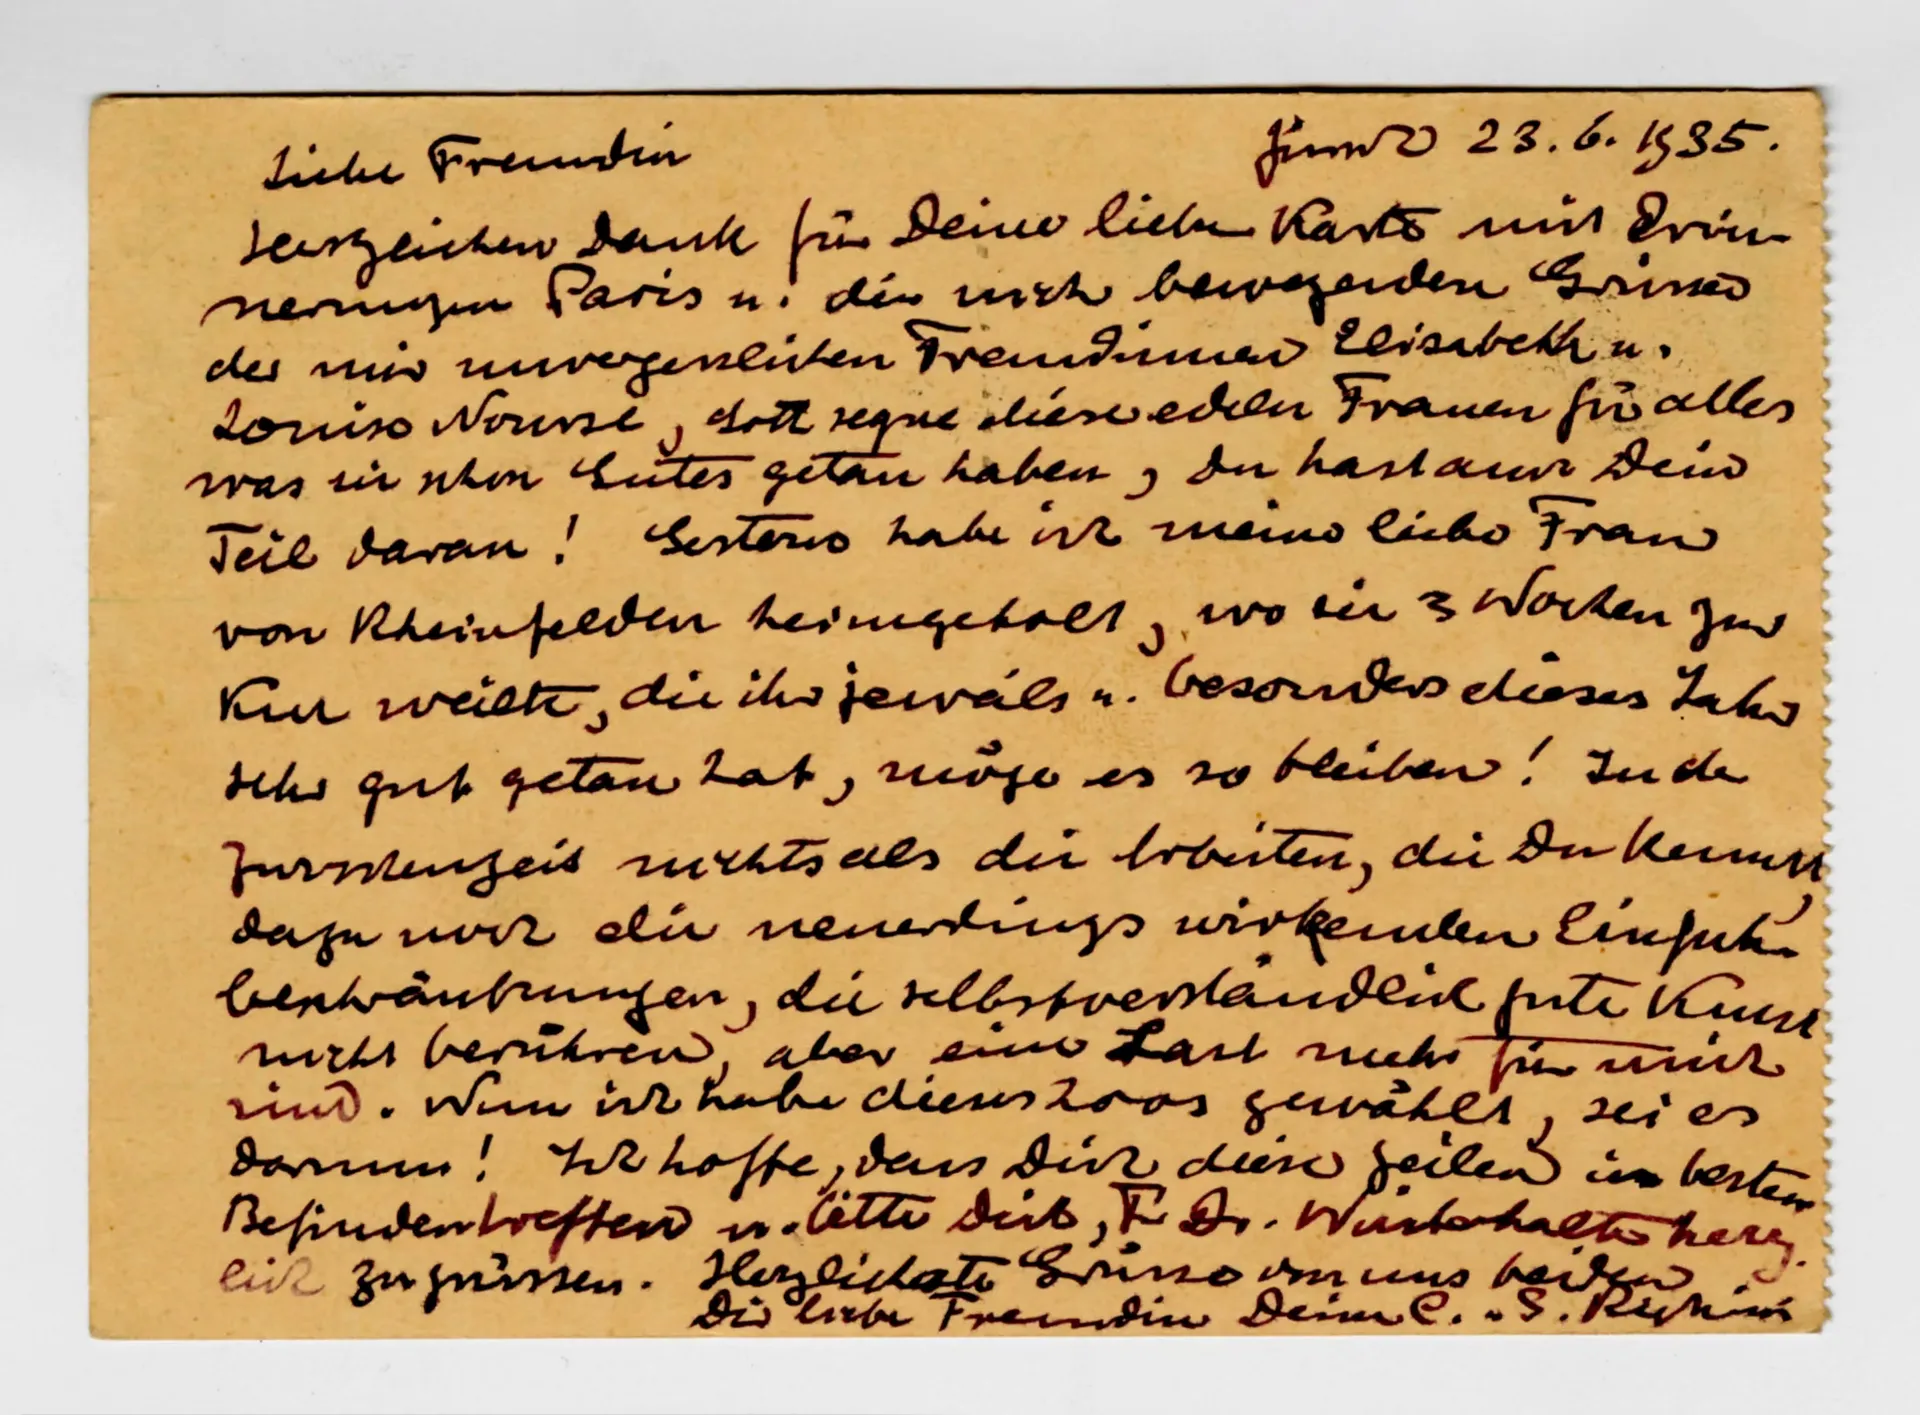 Liebe Freundin
23. 6. 1935.
Herzlichen Dank für Deine liebe Karte mit Erin-
nerungen Paris u. die mich bewegenden Grüsse
der mir unvergesslichen Freundinnen Elisabeth u.
Louise Nourse, Gott segne diese edeln Frauen für alles
was sie schon Gutes getan haben, Du hast auch Dein
Teil daran! Gestern habe ich meine liebe Frau
von Rheinfelden heimgeholt, wo sie 3 Wochen zur
Kur weilte, die ihr jeweils u. besonders dieses Jahr
sehr gut getan hat, möge es so bleiben! In der
Zwischenzeit nichts als die Arbeiten, die Du kennst,
dazu noch die neuerdings wirkenden Einfuhr
beschränkungen, die selbstverständlich gute Kunst
nicht berühren, aber eine Last mehr für mich
sind. Nun ich habe dieses Loos gewählt, sei es
darum! Ich hoffe, dass Dich diese Zeilen im besten
Befinden treffen u. bitte Dich, Dr. herz-
lich zu grüssen. Herzlichste Grüsse von uns beiden
Dir liebe Freundin Deine C. u. S.